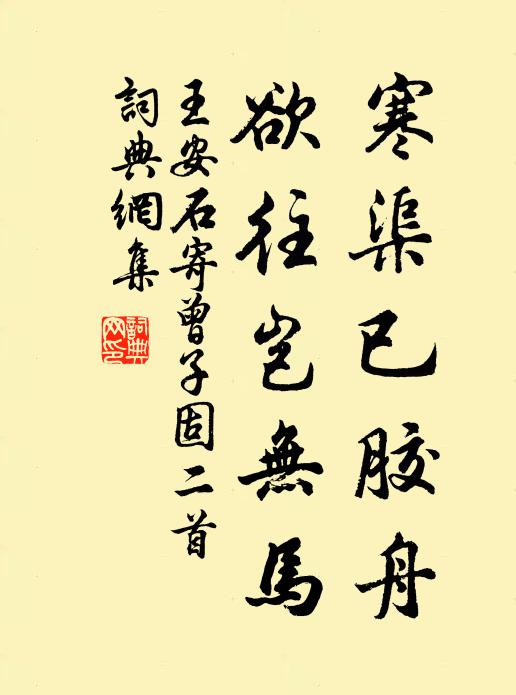 寒渠已膠舟
欲往豈無馬
王安石寄曾子固二首
詞典網集
詞典網印